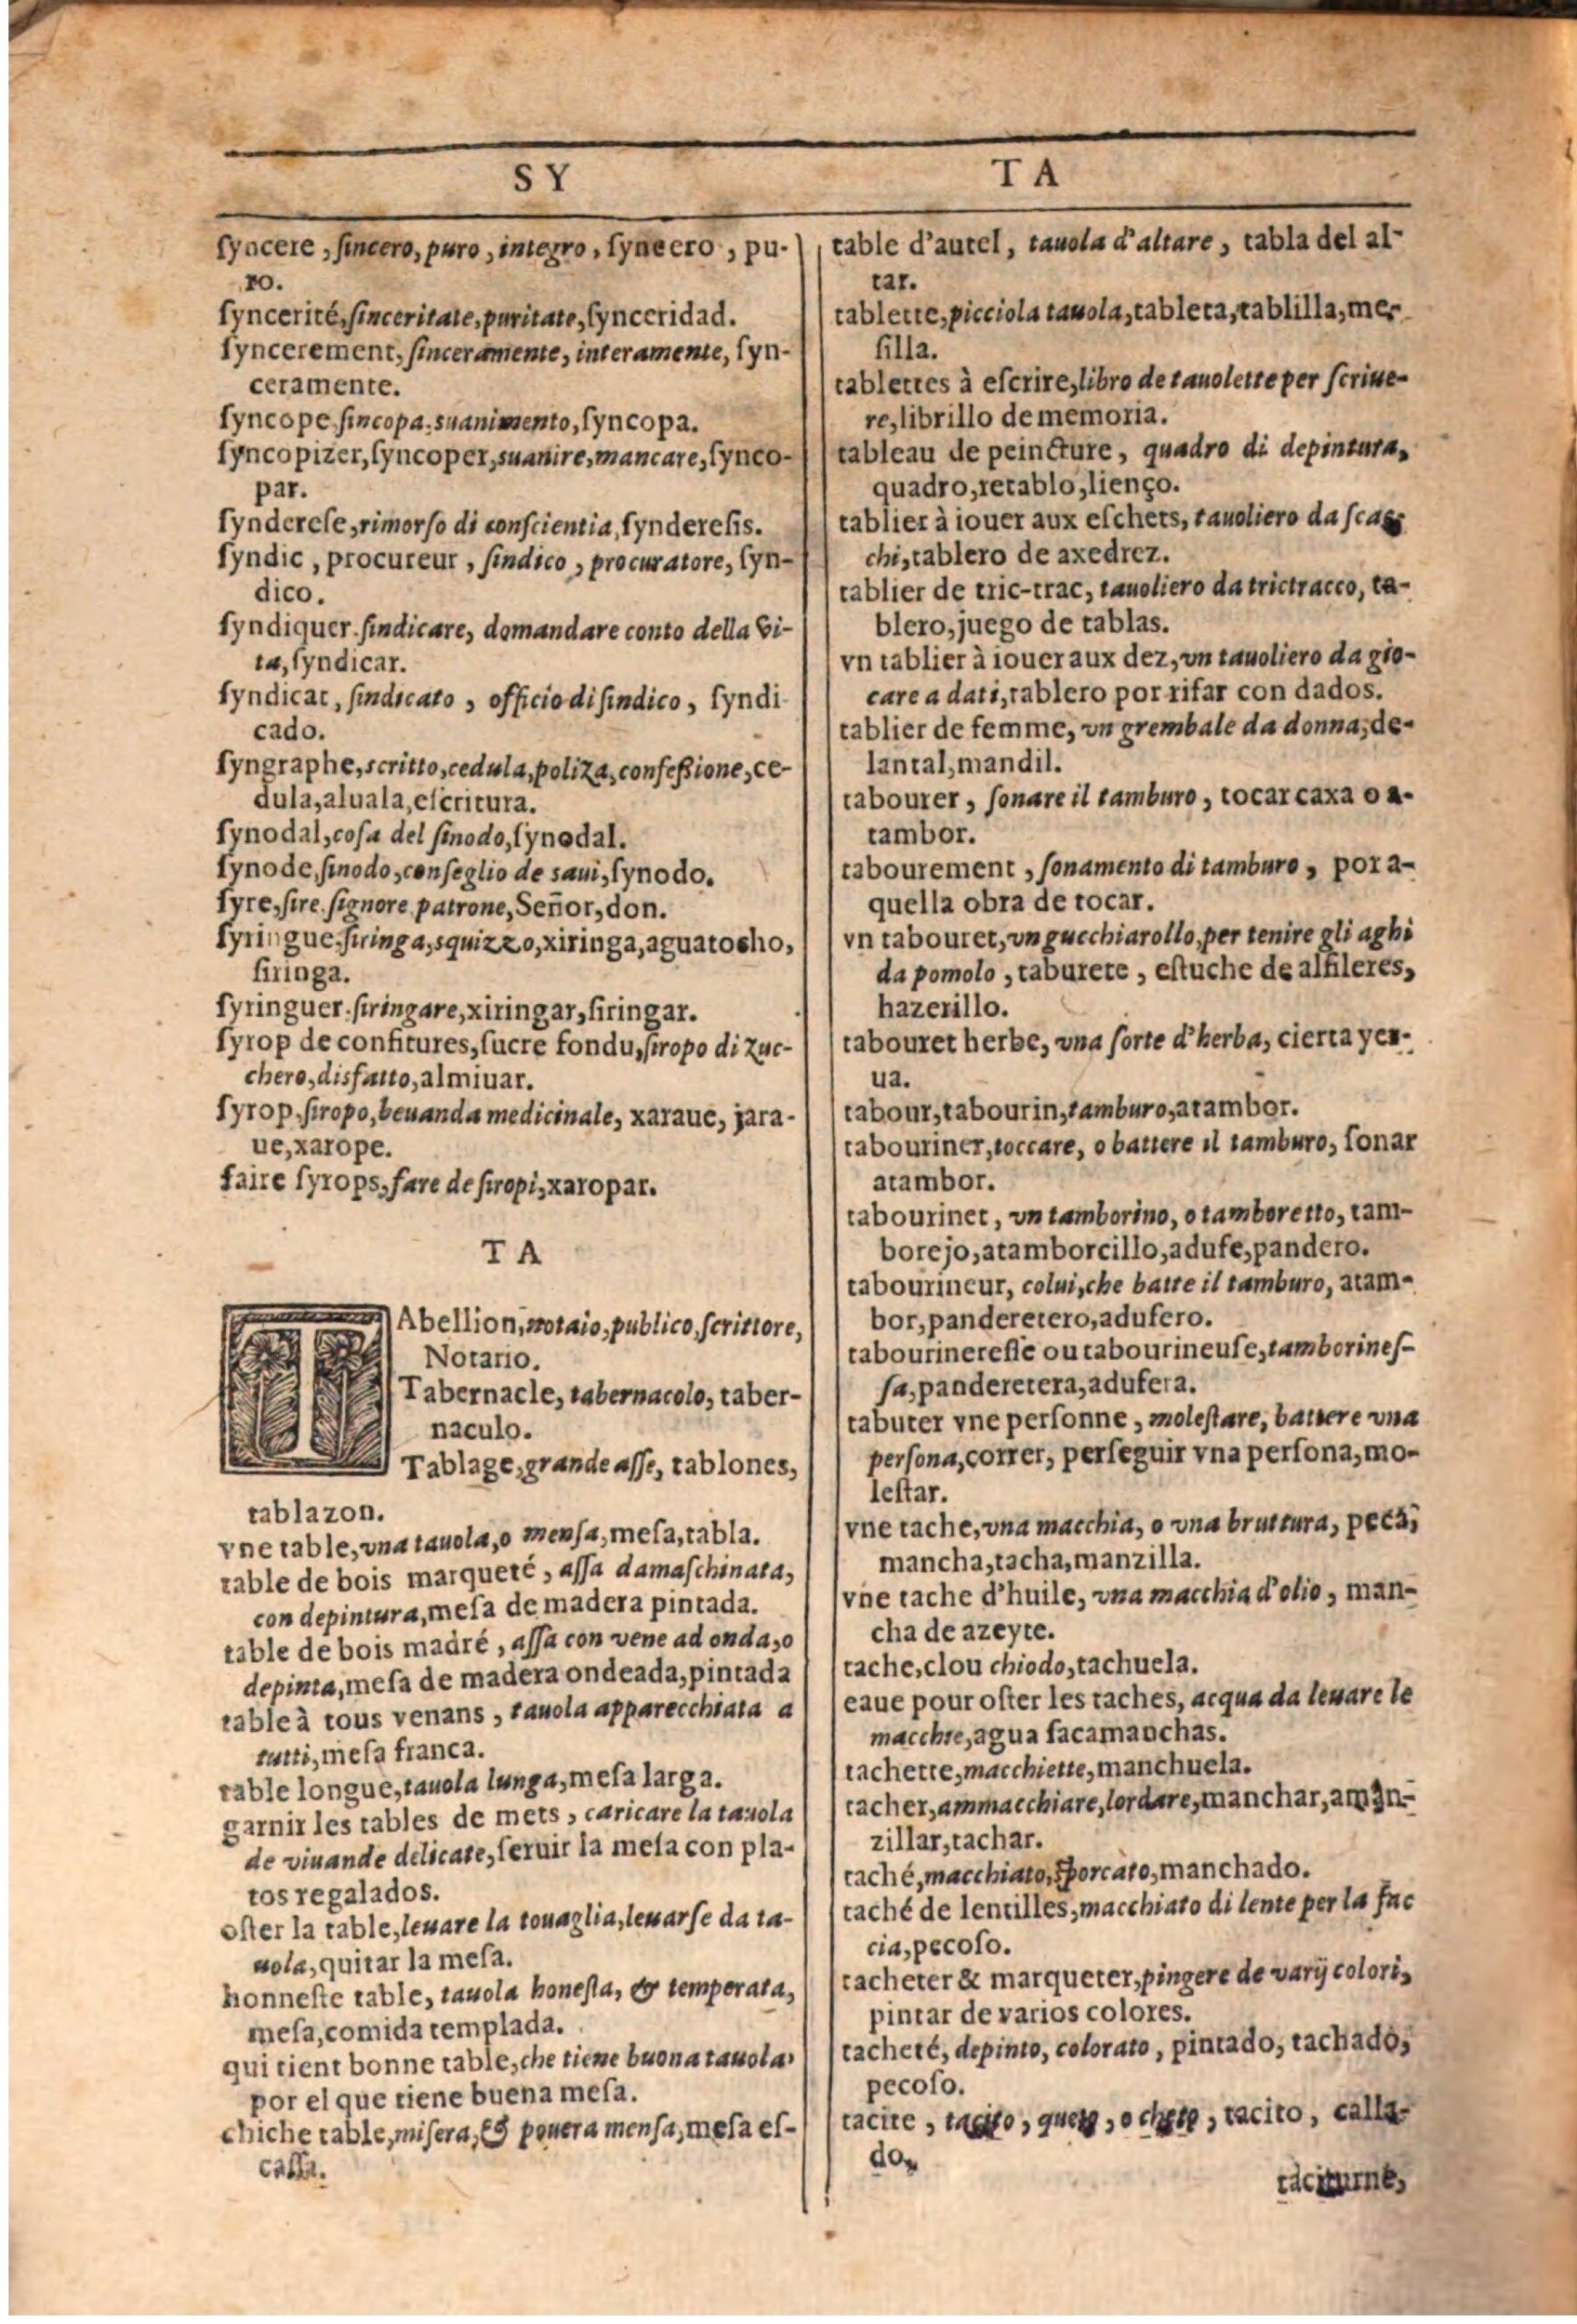 SY
ſyncere, ſincero, puro, integro, ſyncero, pu-
ro.
ſyncerité, ſinceritate, puritate, ſynceridad.
ſyncerement, ſinceramente, interamente, ſyn-
ceramente.
ſyncope, ſincopa, suanimento, ſyncopa.
ſyncopizer, ſyncoper, suanire, mancare, ſynco-
par.
ſyndereſe, rimorſo di conſcientia, ſyndereſis.
ſyndic, procureur, ſindico, procuratore, ſyn-
dico.
ſyndiquer. ſindicare, domandare conto della vi-
ta, ſyndicar.
ſyndicat, ſindicato, officio di ſindico, ſyndi
cado.
ſyngraphe, scritto, cedula, poliza, confeſsione, ce-
dula, aluala, eſcritura.
ſynodal, coſa del ſinodo, ſynodal.
ſynode, ſinodo, conſeglio de savi, ſynodo.
ſyre, ſire. ſignore patrone, Señor, don.
ſyringue. ſiringa, squizzo, xiringa, aguatocho,
ſiringa.
ſyringuer. ſiringare, xiringar, ſiringar.
ſyrop de confitures, ſucre fondu, ſiropo di zuc-
chero, disfatto, almiuar.
ſyrop, ſiropo, beuanda medicinale, xaraue, jara-
ue, xarope.
faire ſyrops, fare de ſiropi, xaropar.
TA
TAbellion, notaio, publico, ſcrittore,
Notario.
Tabernacle, tabernacolo, taber-
naculo.
Tablage, grande aſſe, tablones,
tablazon.
vne table, vna tauola, o menſa, meſa, tabla.
table de bois marqueté, aſſa damaſchinata,
con depintura, meſa de madera pintada.
table de bois madré, aſſa con vene ad onda, o
depinta, meſa de madera ondeada, pintada
table à tous venans, tauola apparecchiata a
tutti, meſa franca.
table longue, tauola lunga, meſa larga.
garnir les tables de mets, caricare la tauola
de viuande delicate, ſeruir la meſa con pla-
tos regalados.
oſter la table, leuare la touaglia, leuarſe da ta-
uola, quitar la meſa.
honneſte table, tauola honeſta, & temperata,
meſa, comida templada.
qui tient bonne table, che tiene buona tauola,
por el que tiene buena meſa.
chiche table, miſera, & pouera menſa, meſa eſ-
caſſa.
TA
table d'autel, tauola d'altare, tabla del al-
tar.
tablette, picciola tauola, tableta, tablilla, me-
ſilla.
tablettes à eſcrire, libro de tauolette per ſcriue-
re, librillo de memoria.
tableau de peincture, quadro di depintura,
quadro, retablo, lienço.
tablier à iouer aux eſchets, tauoliero da ſcac
chi, tablero de axedrez.
tablier de tric-trac, tauoliero da trictracco, ta-
blero, juego de tablas.
vn tablier à iouer aux dez, vn tauoliero da gio-
care a dati, tablero por rifar con dados.
tablier de femme, vn grembale da donna, de-
lantal, mandil.
tabourer, ſonare il tamburo, tocar caxa o a-
tambor.
tabourement, ſonamento di tamburo, por a-
quella obra de tocar.
vn tabouret, vn gucchiarollo, per tenire gli aghi
da pomolo, taburete, eſtuche de alfileres,
hazerillo.
tabouret herbe, vna ſorte d'herba, cierta yer-
ua.
tabour, tabourin, tamburo, atambor.
tabouriner, toccare, o battere il tamburo, ſonar
atambor.
tabourinet, vn tamborino, o tamboretto, tam-
borejo, atamborcillo, adufe, pandero.
tabourineur, colui, che batte il tamburo, atam-
bor, panderetero, adufero.
tabourinereſſe ou tabourineuſe, tamborineſ-
ſa, panderetera, adufera.
tabuter vne perſonne, moleſtare, battere vna
perſona, correr, perſeguir vna perſona, mo-
leſtar.
vne tache, vna macchia, o vna bruttura, peca,
mancha, tacha, manzilla.
vne tache d'huile, vna macchia d'olio, man-
cha de azeyte.
tache, clou chiodo, tachuela.
eaue pour oſter les taches, acqua da leuare le
macchie, agua ſacamanchas.
tachette, macchiette, manchuela.
tacher, ammacchiare, lordare, manchar, aman-
zillar, tachar.
taché, macchiato, sporcato, manchado.
taché de lentilles, macchiato di lente per la fac
cia, pecoſo.
tacheter & marqueter, pingere de varij colori,
pintar de varios colores.
tacheté, depinto, colorato, pintado, tachado,
pecoſo.
tacite, tacito, queto, o cheto, tacito, calla-
do.
taciturne,